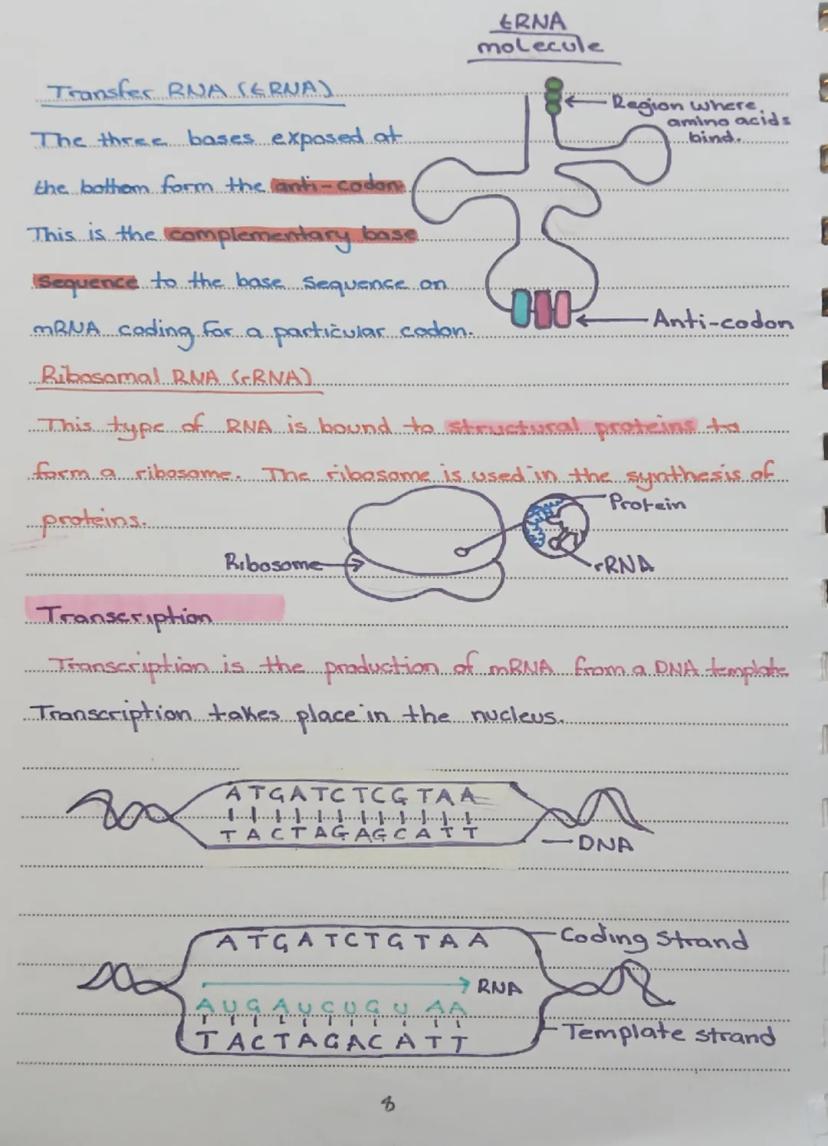 tRNA
molecule
Transfer RNA (tRNA)
Region where
amino acids
bind.
The three bases exposed at
the bottom form the anti-codon
This is the complementary base
sequence to the base sequence on
mRNA coding for a particular codon.
Anti-codon
Ribosomal RNA (rRNA)
This type of RNA is bound to structural proteins to
form a ribosome. The ribosome is used in the synthesis of
proteins.
Protein
Ribosome
rRNA
Transcription
Transcription is the production of mRNA from a DNA template
Transcription takes place in the nucleus.
A T G A T C T C G T A A
T A C T A G A G C A T T
DNA
A T G A T C T G T A A
Coding Strand
RNA
A U G A U C U G U A A
T A C T A G A C A T T
Template strand
8